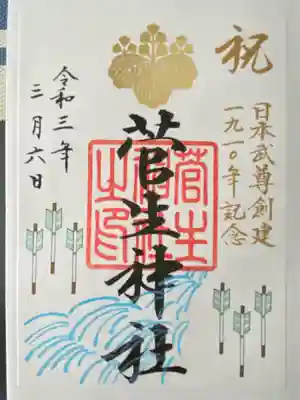 祝
日本武尊創建
一九一〇年記念
菅生神社
菅生神社之印
令和三年
三月六日